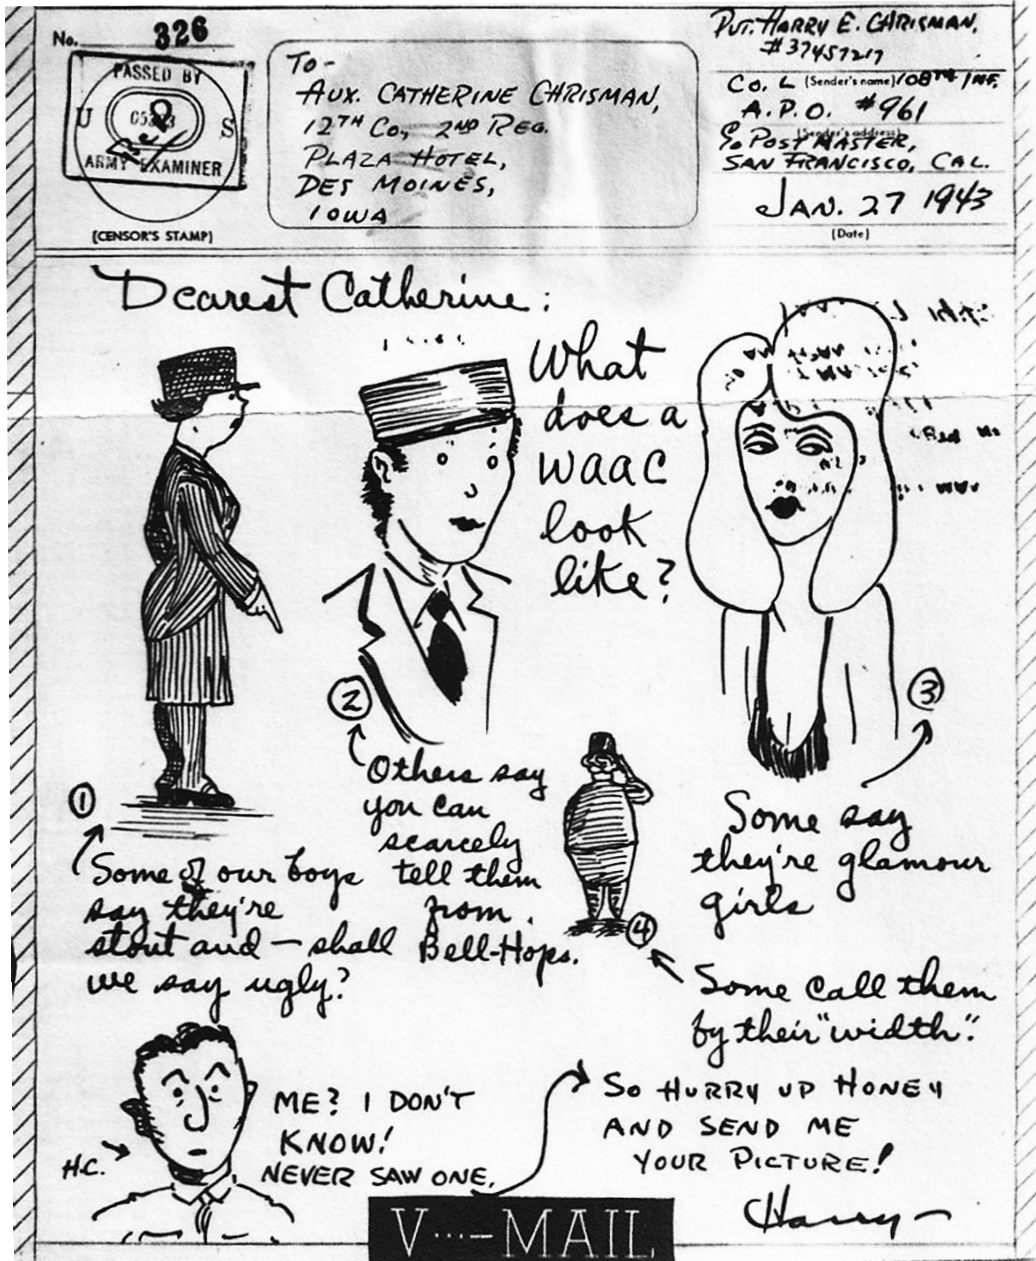 No. 326
PASSED BY
U S
ARMY EXAMINER
(CENSOR'S STAMP)
To-
AUX. CATHERINE CHRISMAN,
12TH CO., 2ND REG.
PLAZA HOTEL,
DES MOINES,
IOWA
PVT. HARRY E. CHRISMAN,
#37457217
CO. L (Sender's name) 108TH INF.
A.P.O. #961
(Sender's address)
C/o POSTMASTER,
SAN FRANCISCO, CAL.
JAN. 27 1943
(Date)
Dearest Catherine:
What
does a
WAAC
look
like?
1
Some of our boys
say they're
stout and – shall
we say ugly?
2
Others say
you can
scarcely
tell them
from
Bell-Hops.
3
Some say
they're glamour
girls
4
Some call them
by their "width".
H.C.
ME? I DON'T
KNOW!
NEVER SAW ONE,
SO HURRY UP HONEY
AND SEND ME
YOUR PICTURE!
Harry
V···–MAIL